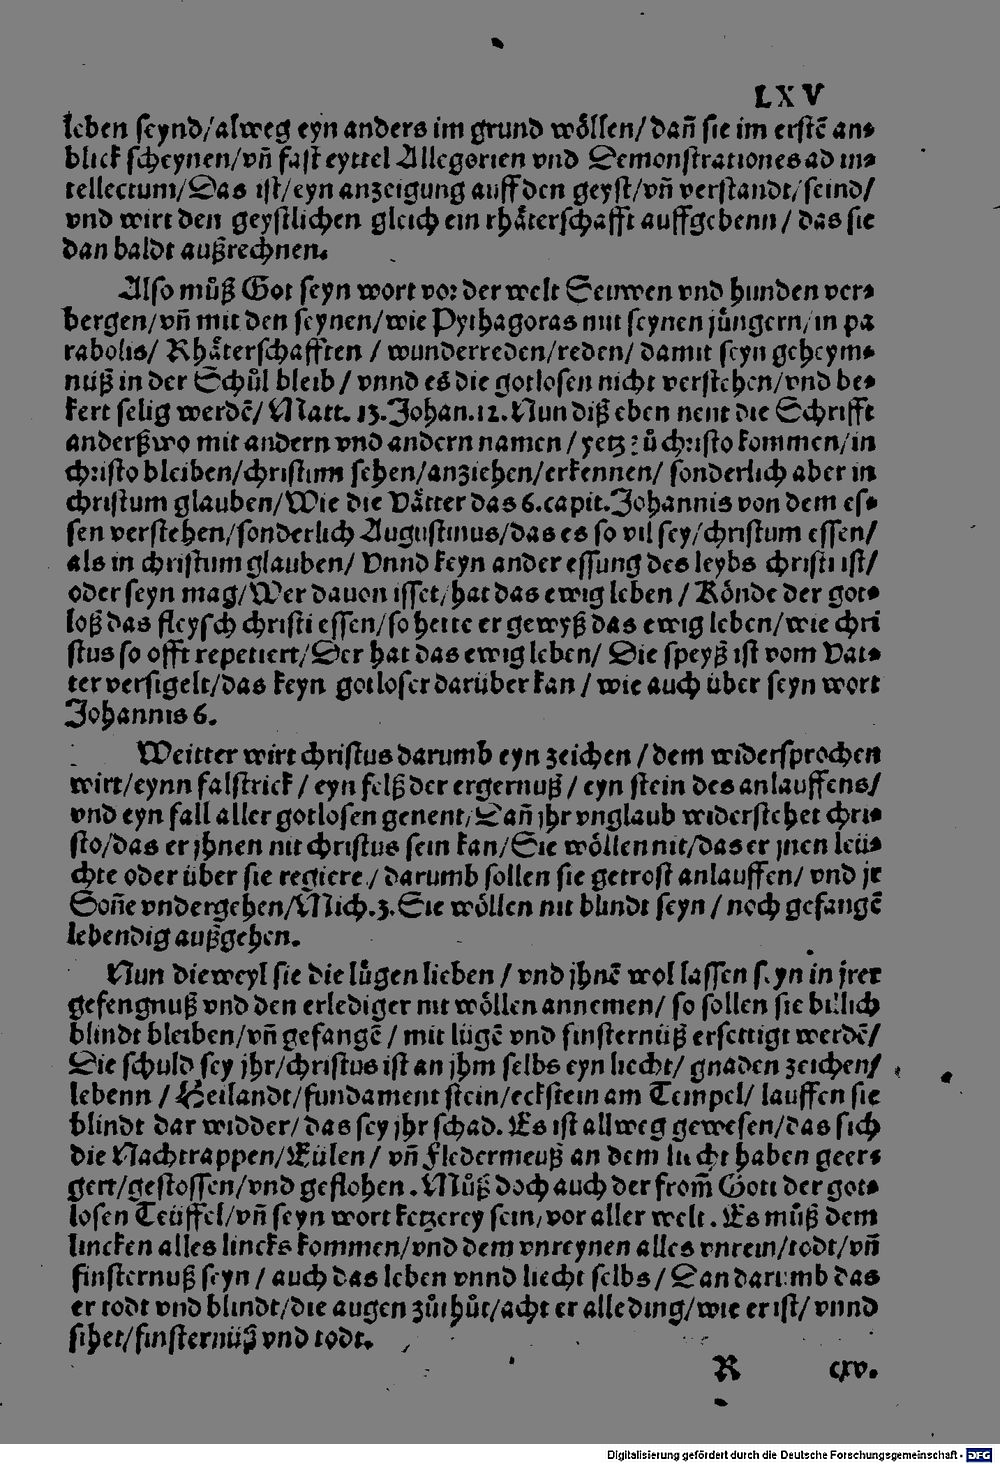 LXV
leben seynd/alweg eyn anders im grund wöllen/dañ sie im erstē an⸗
blick scheynen/vñ fast eyttel Allegorien vnd Demonstrationes ad in⸗
tellectum/Das ist/eyn anzeigung auff den geyst/vñ verstandt/seind/
vnd wirt den geystlichen gleich ein rhäterschafft auffgebenn/das sie
dan baldt außrechnen.
Also můß Got seyn wort vor der welt Seuwen vnd hunden ver⸗
bergen/vñ mit den seynen/wie Pythagoras mit seynen jüngern/in pa
rabolis/Rhäterschafften/wunderreden/reden/damit seyn geheym⸗
nüß in der Schůl bleib/vnnd es die gotlosen nicht verstehen/vnd be⸗
kert selig werdē/Matt. 13. Johan. 12. Nun diß eben nent die Schrifft
anderßwo mit andern vnd andern namen/yetz zů christo kommen/in
christo bleiben/christum sehen/anziehen/erkennen/sonderlich aber in
christum glauben/Wie die Vätter das 6. capit. Johannis von dem es⸗
sen verstehen/sonderlich Augustinus/das es so vil sey/christum essen/
als in christum glauben/Vnnd keyn ander essung des leybs christi ist/
oder seyn mag/Wer dauon isset/hat das ewig leben/Könde der got⸗
loß das fleysch christi essen/so hette er gewyß das ewig leben/wie chri
stus so offt repetiert/Der hat das ewig leben/Die speyß ist vom Vat⸗
ter versigelt/das keyn gotloser darüber kan/wie auch über seyn wort
Johannis 6.
Weitter wirt christus darumb eyn zeichen/dem widersprochen
wirt/eynn falstrick/eyn felß der ergernuß/eyn stein des anlauffens/
vnd eyn fall aller gotlosen genent/Dañ jhr vnglaub widerstehet chri⸗
sto/das er jhnen nit christus sein kan/Sie wöllen nit/das er jnen leü⸗
chte oder über sie regiere/darumb sollen sie getrost anlauffen/vnd jr
Soñe vndergehen/Mich. 3. Sie wöllen nit blindt seyn/noch gefangē
lebendig außgehen.
Nun dieweyl sie die lügen lieben/vnd jhnē wol lassen seyn in jrer
gefengnuß vnd den erlediger nit wöllen annemen/so sollen sie billich
blindt bleiben/vñ gefangē/mit lügē vnd finsternüß ersettigt werdē/
Die schuld sey jhr/christus ist an jhm selbs eyn liecht/gnaden zeichen/
lebenn/Heilandt/fundament stein/eckstein am Tempel/lauffen sie
blindt dar widder/das sey jhr schad. Es ist allweg gewesen/das sich
die Nachtrappen/Eülen/vñ fledermeuß an dem liecht haben geer⸗
gert/gestossen/vnd geflohen. Můß doch auch der from̃ Gott der got⸗
losen Teüffel/vñ seyn wort ketzerey sein/vor aller welt. Es můß dem
lincken alles lincks kommen/vnd dem vnreynen alles vnrein/todt/vñ
finsternuß seyn/auch das leben vnnd liecht selbs/Dan darumb das
er todt vnd blindt/die augen zůthůt/acht er alle ding/wie er ist/vnnd
sihet/finsternüß vnd todt.
R cxv.
Digitalisierung gefördert durch die Deutsche Forschungsgemeinschaft - DFG